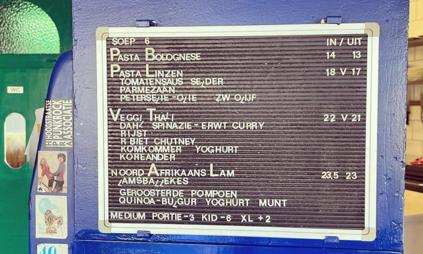 SOEP 6 IN / UIT
PASTA BOLOGNESE 14 13
PASTA LINZEN 18 V 17
TOMATENSAUS SE¿DER
PARMEZAAN
PETERSE¿IE-O¿IE ZW O¿IJF
VEGGI THALI 22 V 21
DAH¿ SPINAZIE - ERWT CURRY
RIJST
R BIET CHUTNEY
KOMKOMMER YOGHURT
KOREANDER
NOORD AFRIKAANS LAM 23,5 23
¿AMSBA¿¿EKES
GEROOSTERDE POMPOEN
QUINOA-BU¿GUR YOGHURT MUNT
MEDIUM PORTIE-3 KID-6 XL +2
WC